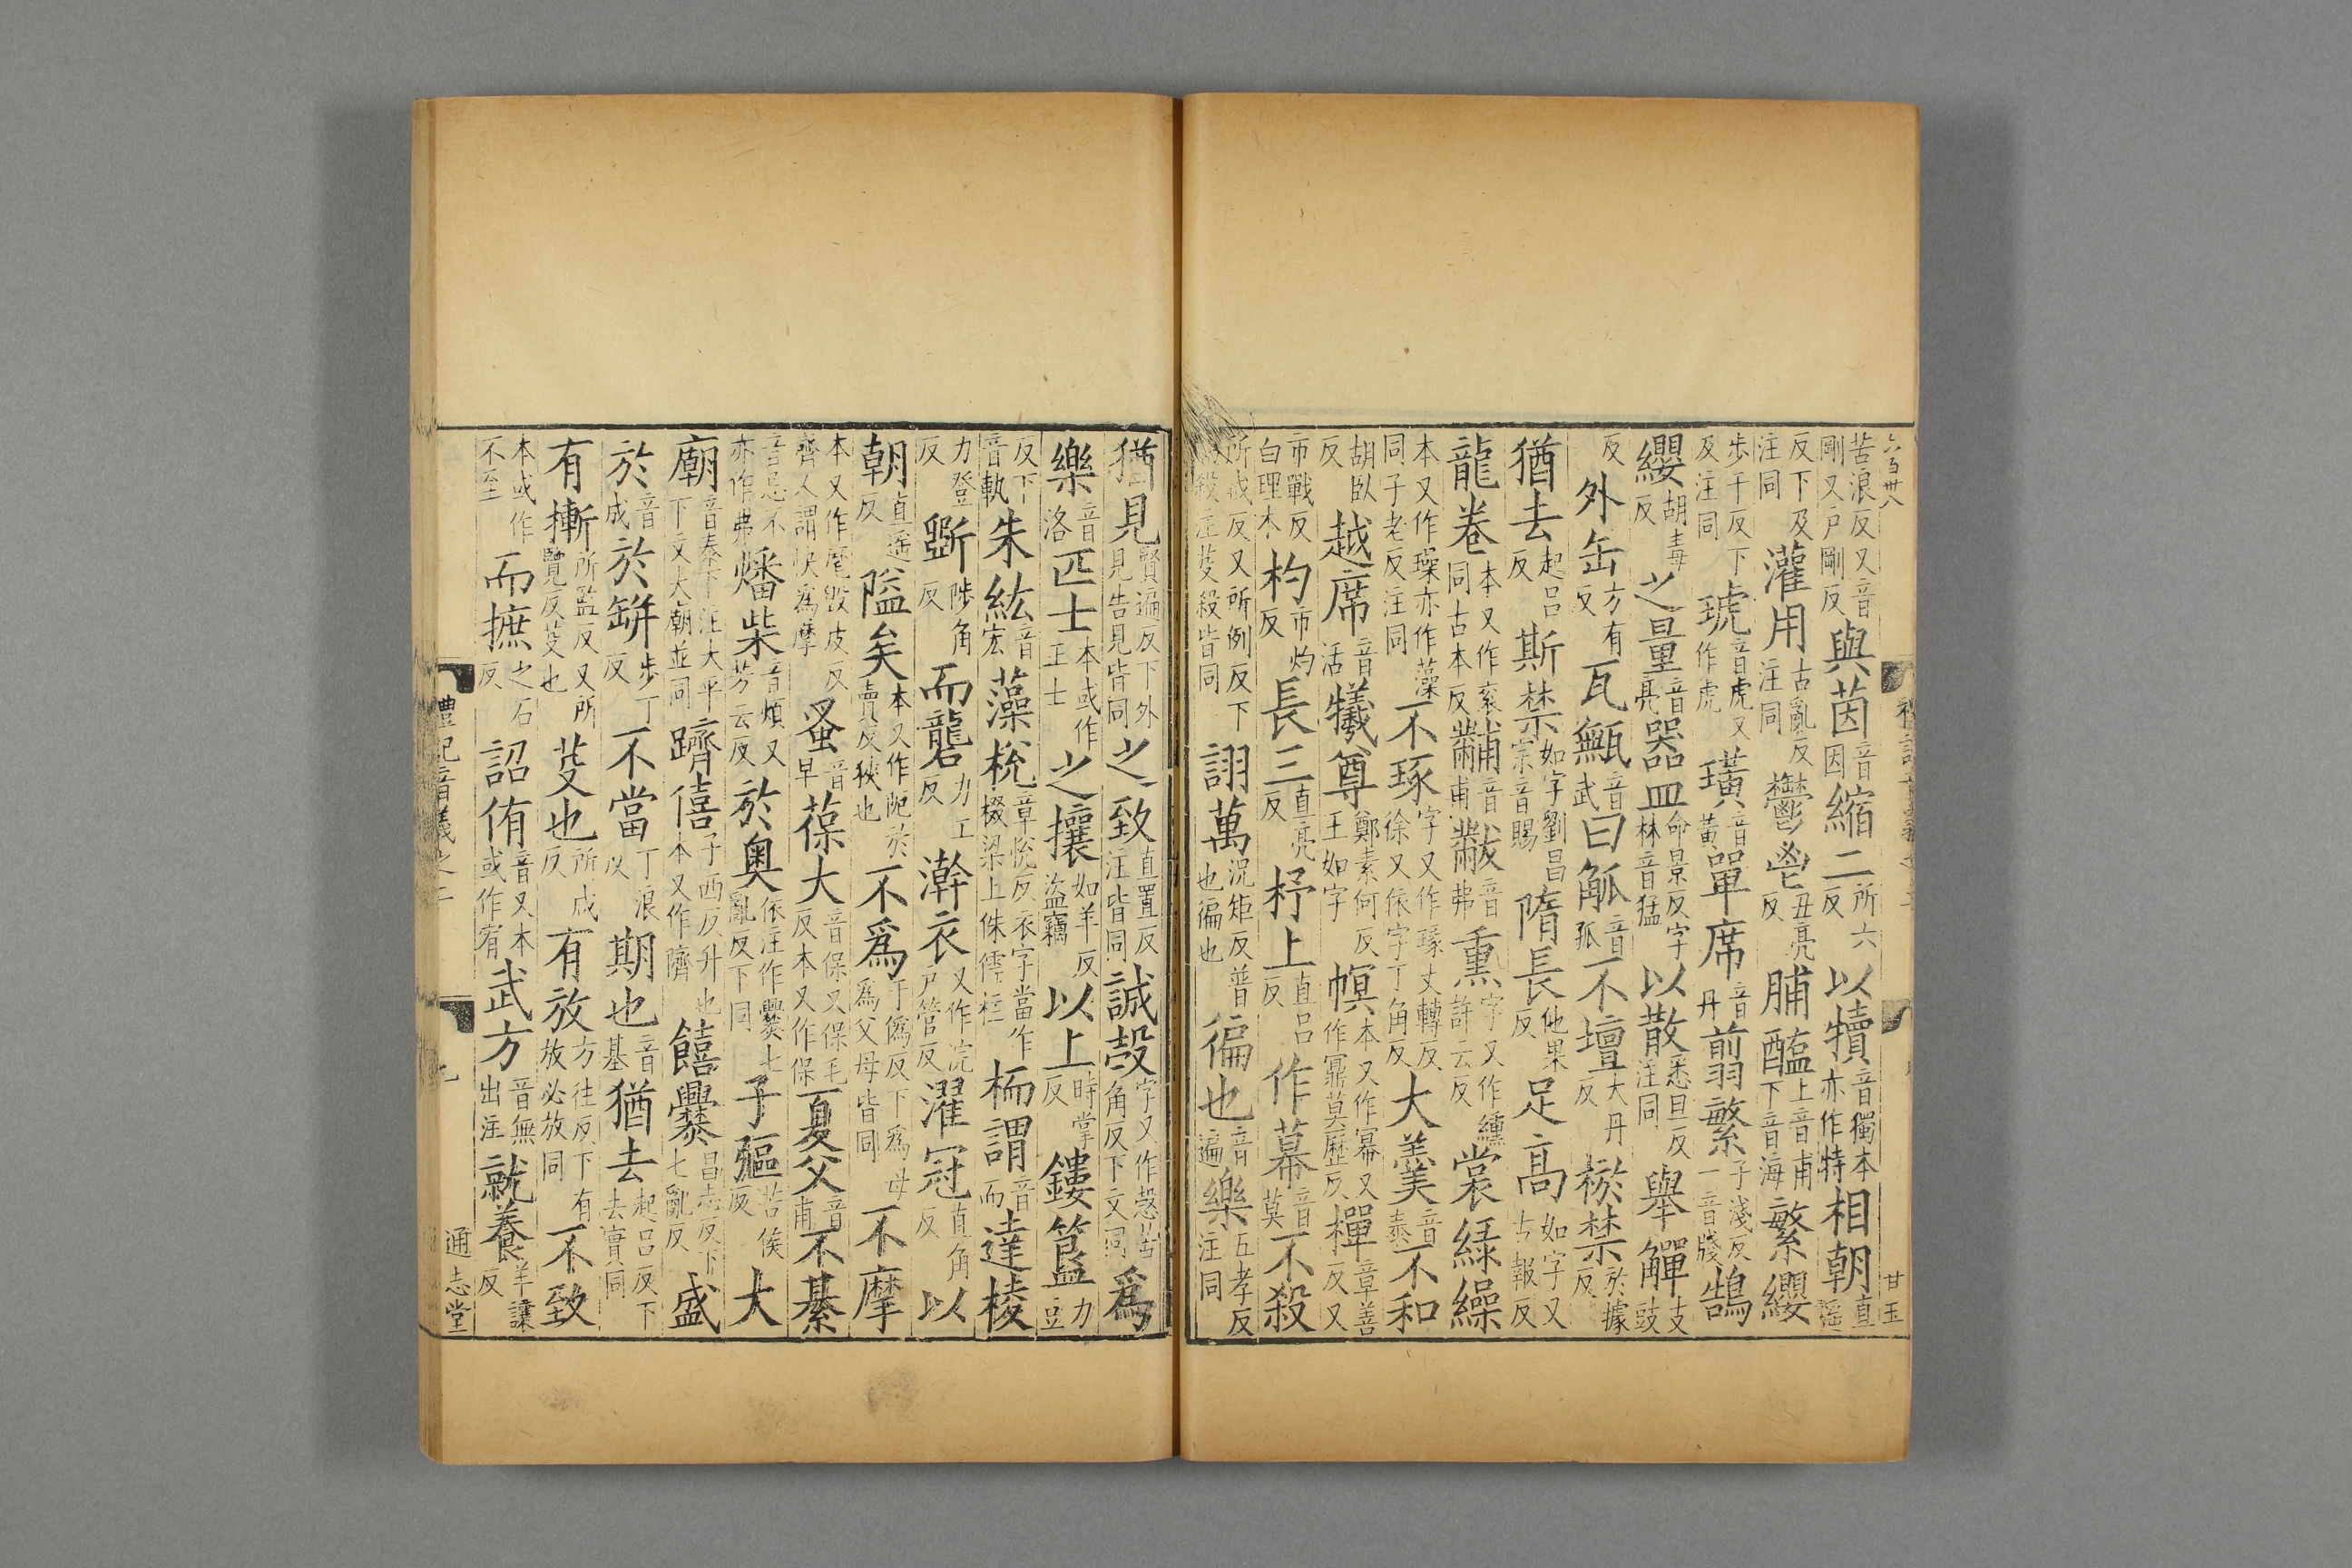 苦浪反又音剛又户剛反與茵音因縮二所六反以犢音獨本亦作特相朝直遥
反下及注同灌用古亂反注同鬱鬯丑亮反脯醢上音甫下音海繁纓
步干反下及注同琥音虎又作虎璜音黃單席音丹翦繁子淺反一音牋鵠
纓胡毒反之量音亮器皿命景反字林音猛以散悉旦反注同舉觶支豉
反外缶方有反瓦甒音武曰觚音孤不壇大丹反棜禁於據反
猶去起呂反斯禁如字劉昌宗音賜隋長他果反足高如字又古報反
龍卷本又作衮同古本反黼音甫黻音弗熏字又作纁許云反裳綠繰
本又作璪亦作藻同子老反注同不琢字又作瑑丈轉反徐又依字丁角反大羹音泰不和
胡臥反越席音活犧尊鄭素何反王如字幎本又作冪又作鼏莫歷反樿章善反又
市戰反白理木杓市灼反長三直亮反杼上直呂反作幕音莫不殺
所戒反又所例反下殺注芟殺皆同詡萬況矩反普也徧也徧也音遍樂五孝反注同
猶見賢遍反下外見告見皆同之致直置反注皆同誠慤字又作愨苦角反下文同爲
樂音洛匹士本或作正士之攘如羊反盜竊以上時掌反鏤簋力豆
反下音軌朱紘音宏藻梲章悅反依字當作棳梁上侏儒柱栭謂音而達棱
力登反斲陟角反而礱力工反澣衣又作浣戸管反濯冠直角反以
朝直遥反隘矣本又作阨於賣反狹也不爲于僞反下爲母爲父母皆同不摩
本又作麾毀皮反齊人謂快爲摩蚤音早葆大音保又保毛反本又作保夏父音甫不綦
音忌不亦作弗燔柴音煩又芳云反於奥依注作爨七亂反下同子彄苦侯反大
廟音泰下注大平下文大廟並同躋僖子西反升也本又作隮饎爨昌志反下七亂反盛
於音成於缾步丁反不當丁浪反期也音基猶去起呂反下去實同
有摲所監反又所覽反芟也芟也所咸反有放方往反下有放必放同不致
本或作不至而摭之石反詔侑音又本或作宥武方音無出注就養羊讓反
六百卅八
甘玉
禮記音義之二
九
通志堂